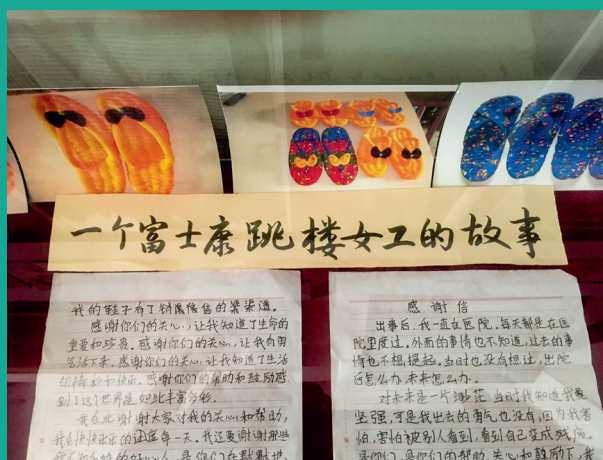 一个富士康跳楼女工的故事
我的鞋子有了销售的渠道。
感谢你们的关心，让我知道了生命的
重要和珍贵。感谢你们的关心，让我有勇
活下来。感谢你们的关心，让我知道了生活
的精彩和快乐。感谢你们的帮助和鼓励感
到了这个世界是如此丰富多彩
我在此谢谢大家对我的关心和帮助，
我会快快乐乐的过每一天。我还要谢谢那些
好心人，是你们在默默地
感谢信
出事后，我一直在医院。每天都是在医
院里度过。外面的事情也不知道，过去的事
情也不想提起。当时也没有想过，出院
后怎么办，未来怎么办。
对未来是一片渺茫，当时我知道我要
坚强，可是我出去的勇气也没有，因为我害
怕，害怕被别人看到，看到自己变成残废。
是你们，是你们的帮助、关心和鼓励下，我